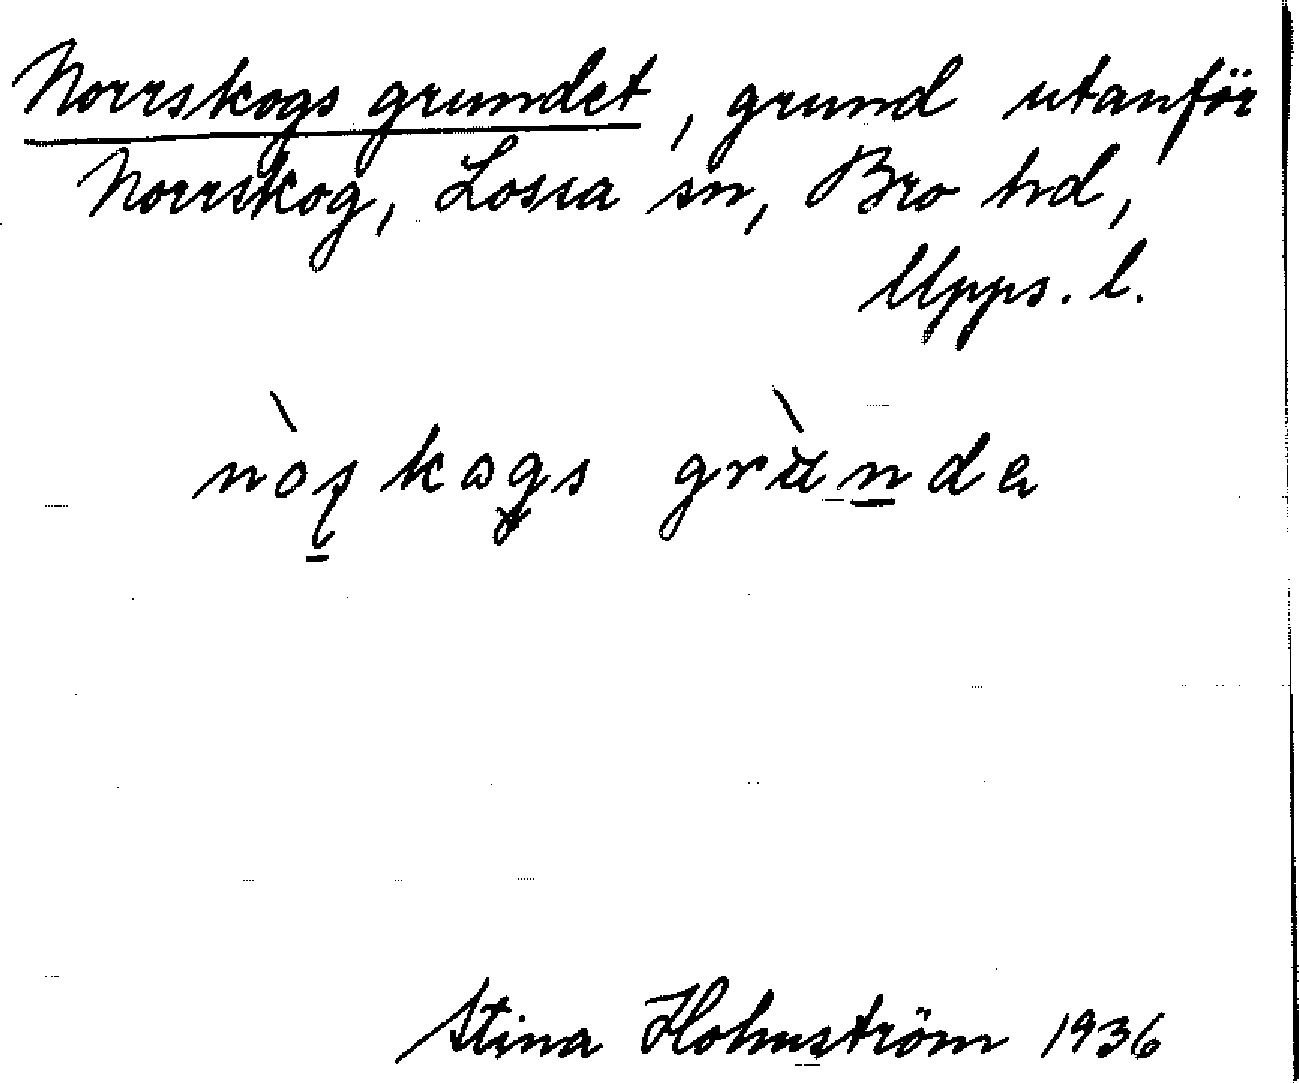 Norrskogs grundet, grund utanför
Norrskog, Lossa sn, Bro hd,
Upps. l.
nòʂkɷgs grùnde
Stina Holmström 1936